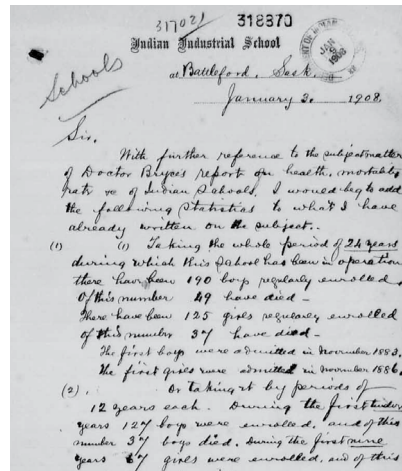 317021
318370
Indian Industrial School
Schools
at Battleford, Sask.
JAN 1908
January 3. 1908.
Sir.
With further reference to the subject matter
of Doctor Bryce's report on health, mortality
rate of Indian Schools, I would beg to add
the following statistics to what I have
already written on the subject.
(1) (1) Taking the whole period of 24 years
during which this school has been in operation
there have been 190 boys regularly enrolled.
Of this number 49 have died —
There have been 125 girls regularly enrolled
of this number 37 have died —
The first boys were admitted in November 1883.
The first girls were admitted in November 1886.
(2). Or taking it by periods of
12 years each. During the first
years 127 boys were enrolled, and of this
number 37 boys died. During the first nine
years 67 girls were enrolled, and of this